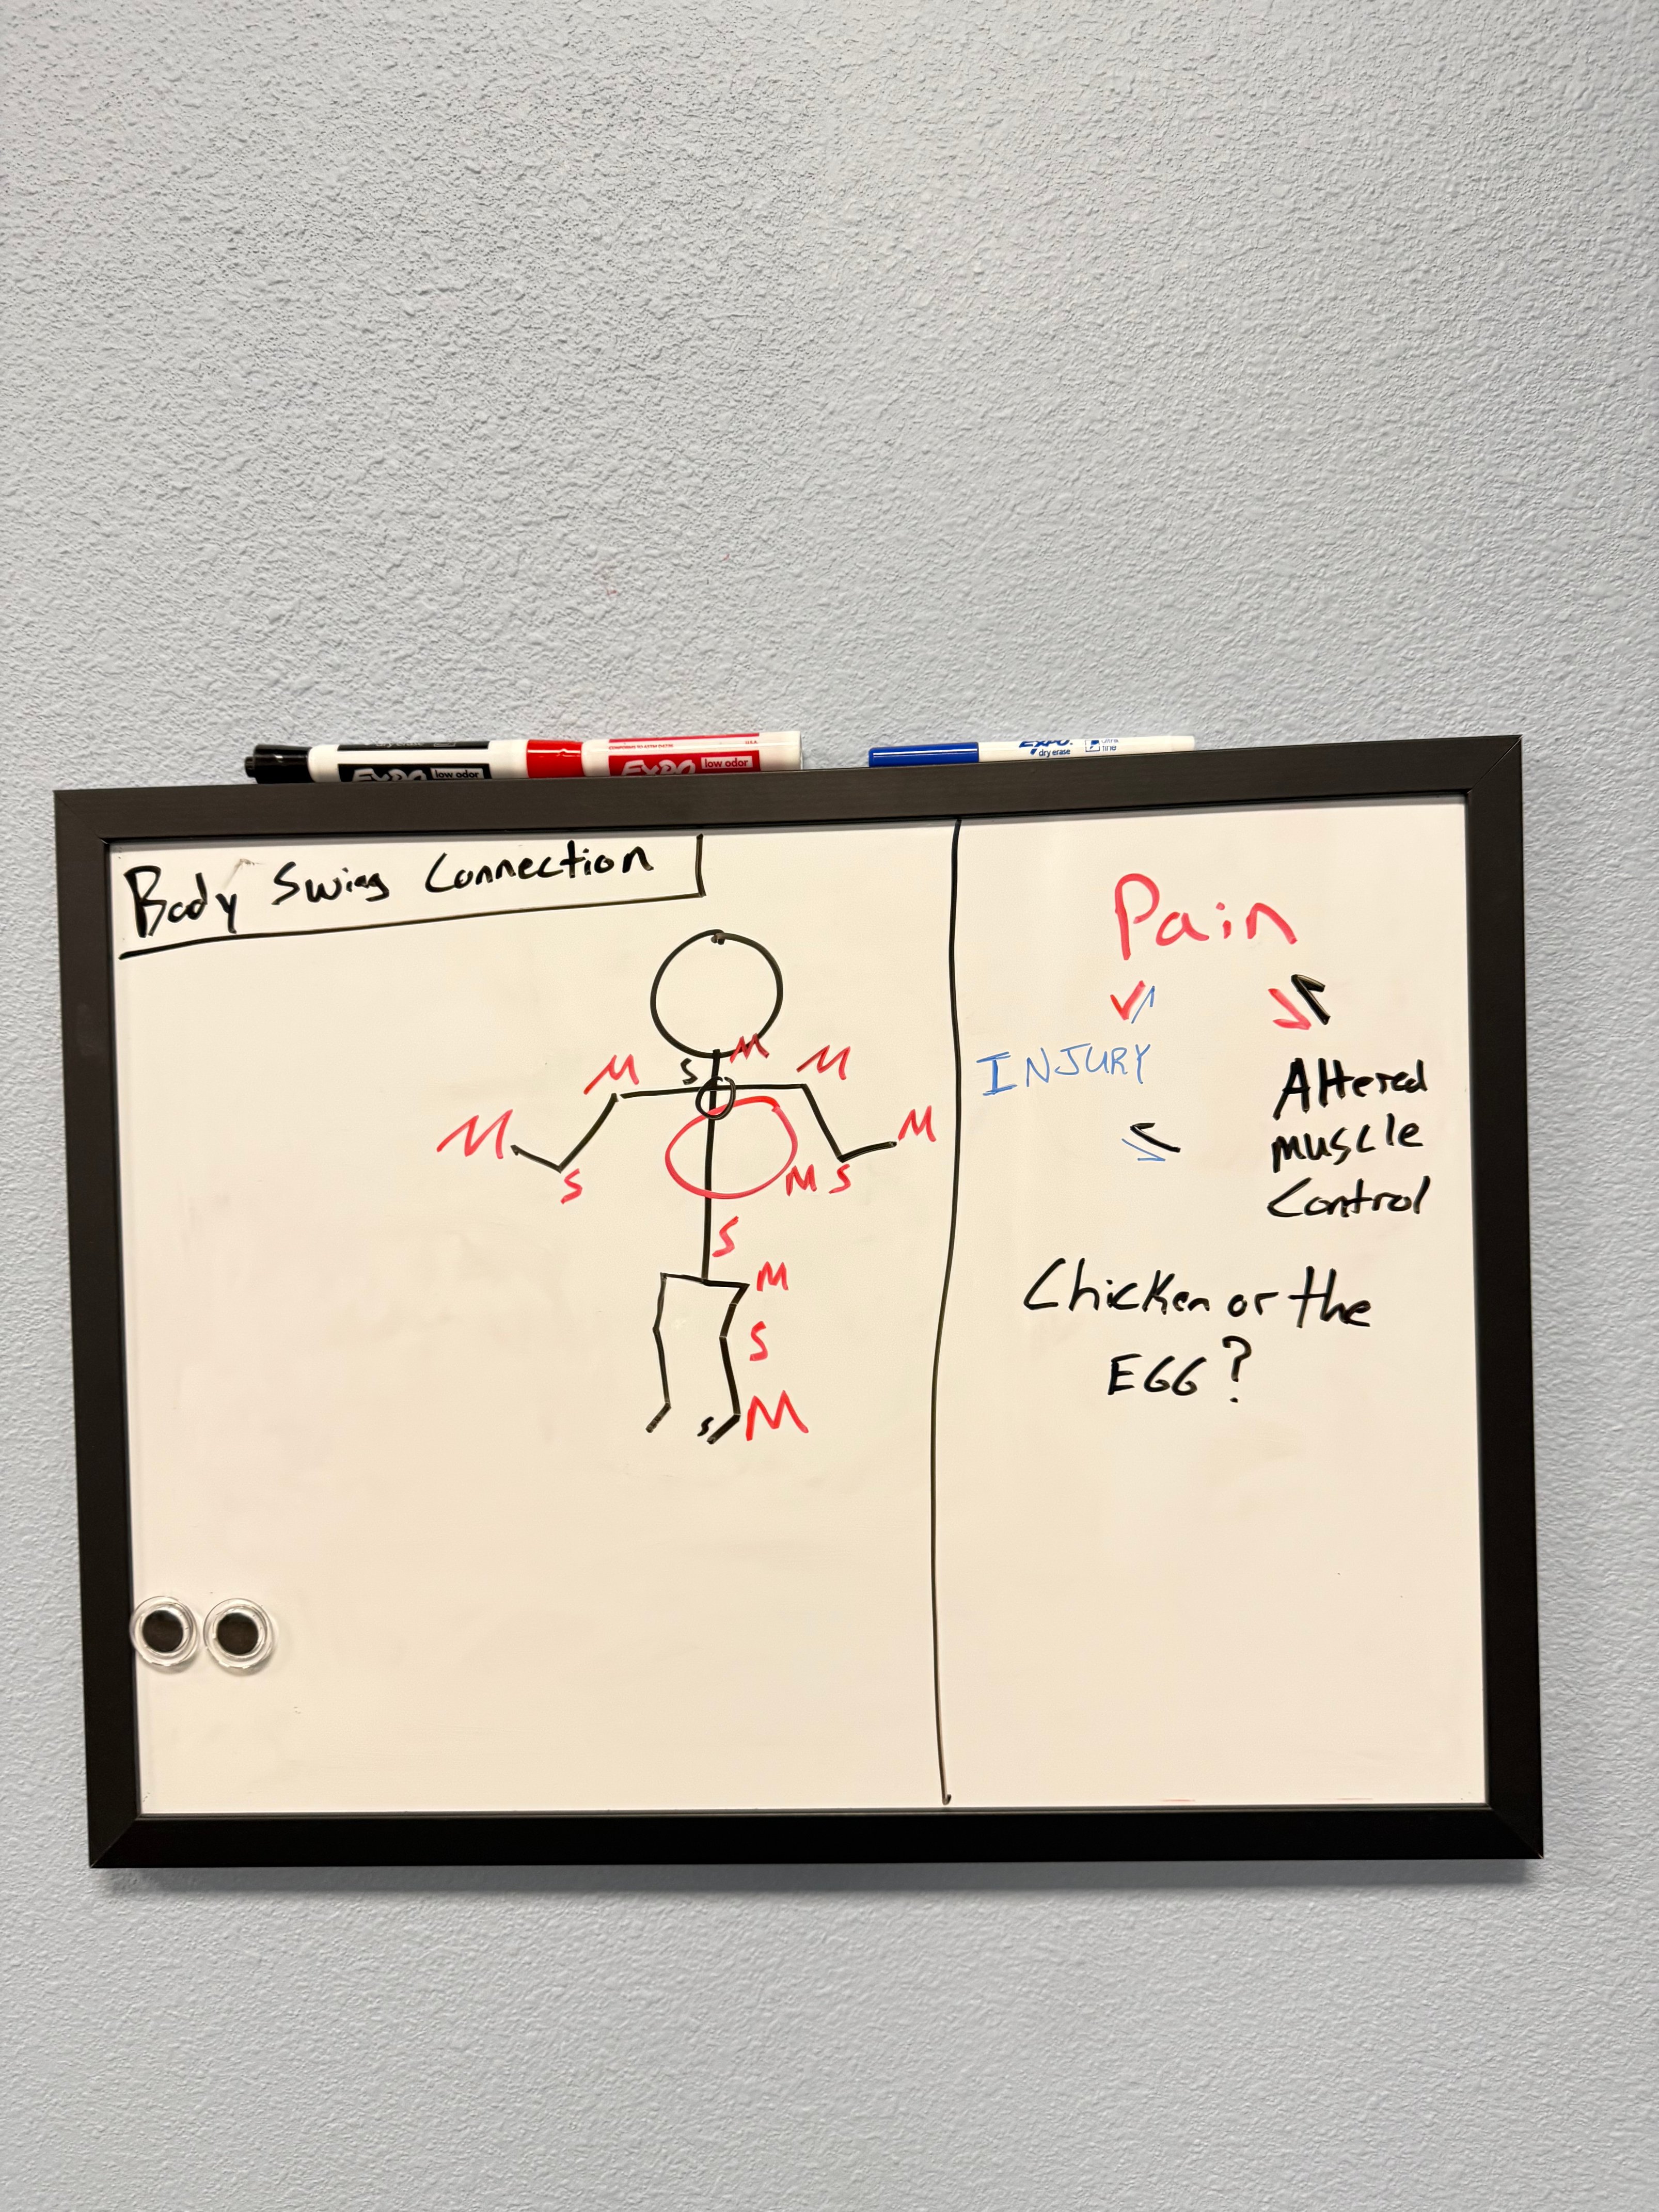 EXPO low odor
EXPO low odor
U.S.A.
EXPO
dry erase
Body Swing Connection
M
S
M
M
M
M
S
M S
S
M
S
M
S
Pain
INJURY
Altered
muscle
Control
Chicken or the
EGG?